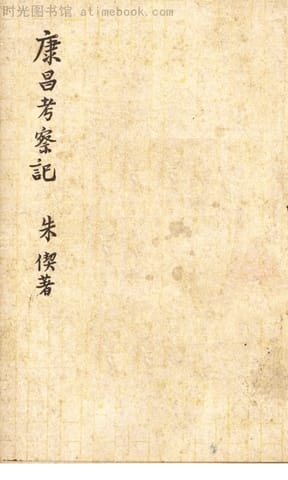 时光图书馆 atimebook.com
康昌考察記
朱偰著